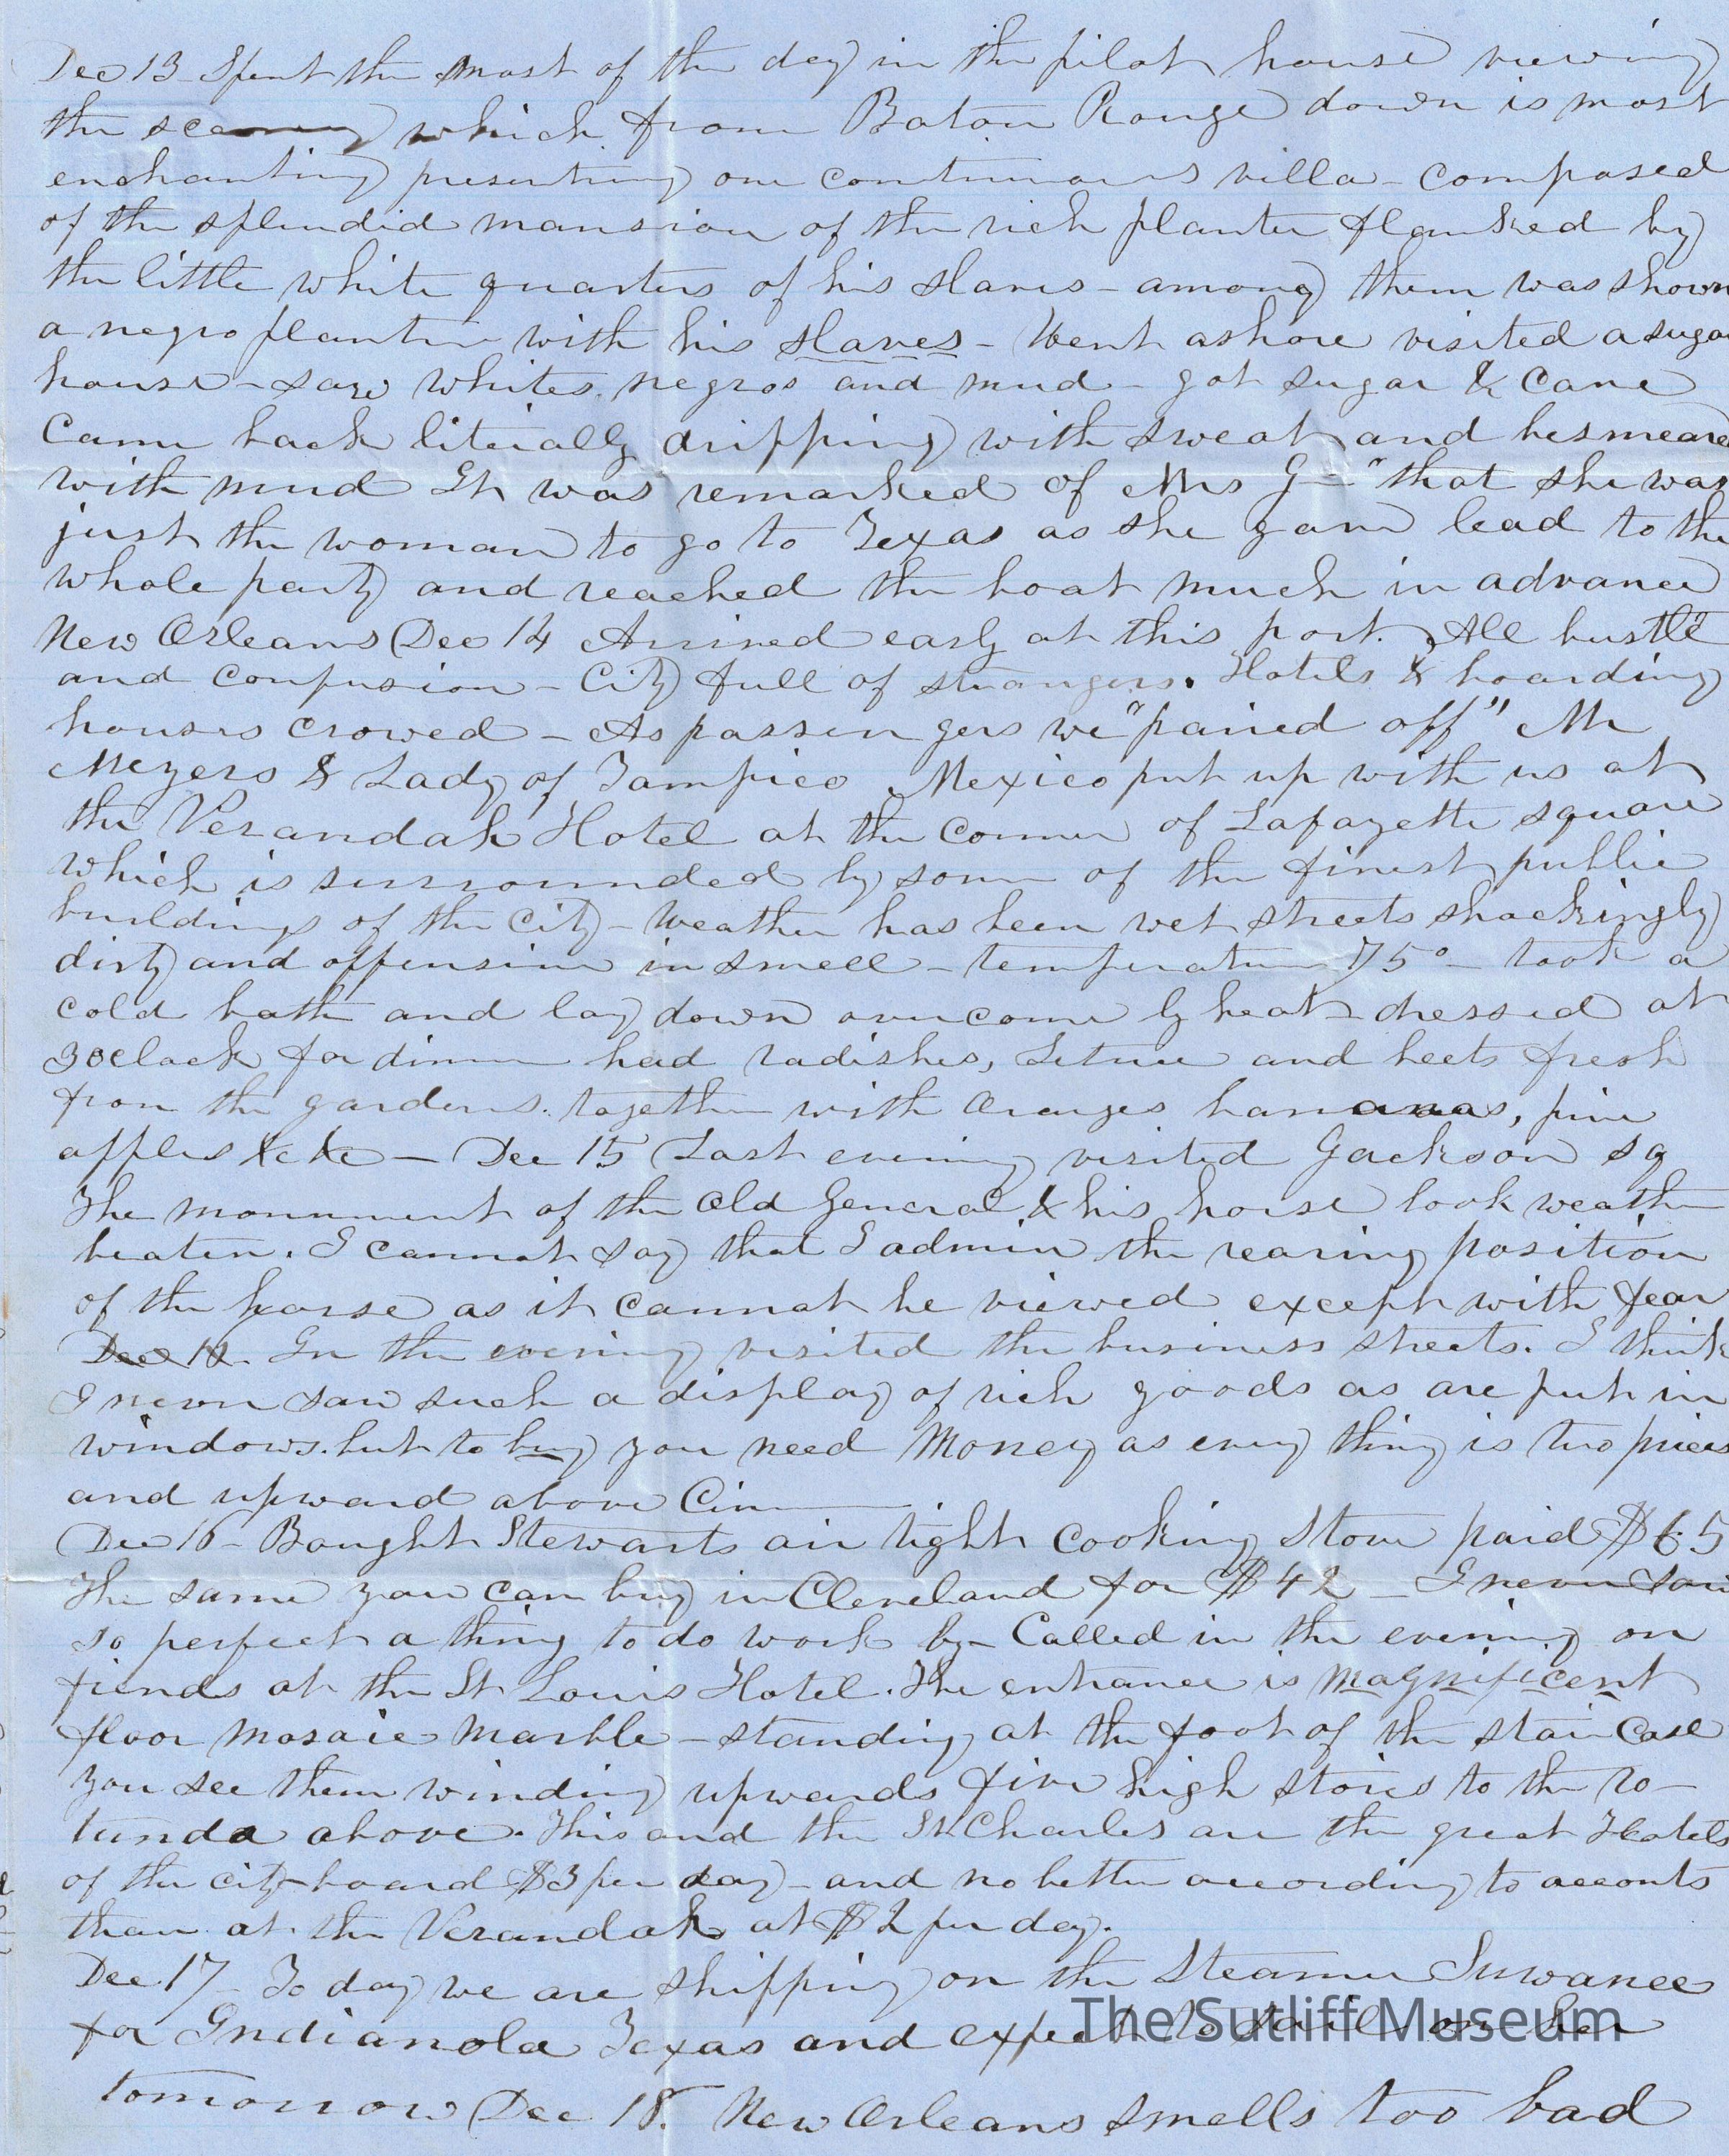 Dec 13 Spent the most of the day in the pilot house viewing
the scenery which from Baton Rouge down is most
enchanting presenting one continuous villa - composed
of the splendid mansion of the rich planter flanked by
the little white quarters of his slaves - among them was shown
a negro planter with his slaves - Went ashore visited a sugar
house - saw whites, negros and mud - got sugar & Cane
Came back literally dripping with sweat and besmeared
with mud It was remarked of Mrs G - "that she was
just the woman to go to Texas as she gave lead to the
whole party and reached the boat much in advance
New Orleans Dec 14 Arrived early at this port. All bustle
and confusion - City full of strangers. Hotels & boarding
houses crowed - As passengers we "paired off" Mr
Meyers & Lady of Tampico Mexico put up with us at
the Verandah Hotel at the corner of Lafayette square
which is surrounded by some of the finest public
buildings of the City - Weather has been wet streets shockingly
dirty and offensive in smell - temperature 75° - took a
cold bath and lay down overcome by heat - dressed at
3 oclock for dinner had radishes, Letuce and beets fresh
from the gardens. together with Oranges bananas, pine
apples &c &c - Dec 15 Last evening visited Jackson sq
The monument of the Old General & his horse look weather
beaten. I cannot say that I admire the rearing position
of the horse as it cannot be viewed except with fear
Dec 16. In the evening visited the business streets. I think
I never saw such a display of rich goods as are put in
windows. but to buy you need Money as every thing is two prices
and upward above Cin
Dec 16 - Bought Stewarts air tight Cooking Stove paid $65
The same you can buy in Cleveland for $42 - I never saw
so perfect a thing to do work by - Called in the evening on
friends at the St Louis Hotel. The entrance is magnificent
floor Mosaic Marble - standing at the foot of the stair Case
you see them winding upwards five high stories to the ro-
tunda above. This and the St Charles are the great Hotels
of the city - board $3 per day - and no better according to acconts
than at the Verandah at $2 per day.
Dec. 17 - To day we are shipping on the Steamer Suwanee
for Indianola Texas and expect to sail on her
tomorrow Dec 18. New Orleans smells too bad
The Sutliff Museum